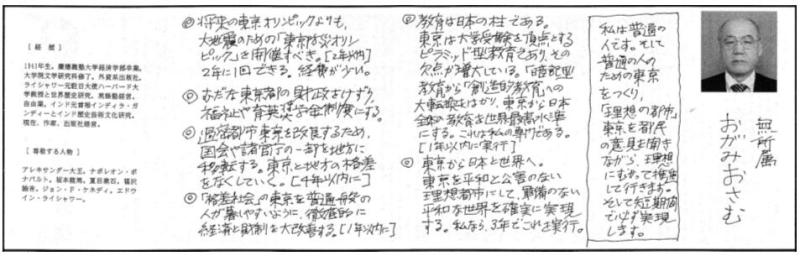 無所属
おがみおさむ
私は普通の
人です。そして
普通の人の
ための東京
をつくり、
「理想の都市」
東京を都民
の意見を聞き
ながら、理想
にむかって推進
して行きます。
そして短期間
で必ず実現
します。
◎教育は日本の柱である。
東京は大学受験を頂点とする
ピラミッド型教育であり、その
欠点が増大している。「暗記型
教育」から「創造的教育」への
大転換をはかり、東京から日本
全体の教育を世界最高水準
にする。これは私の専門である。
[1年以内に実行]
◎東京から日本と世界へ。
東京を平和と公害のない
理想都市にして、軍備のない
平和な世界を確実に実現
する。私なら、3年でこれを実行。
◎将来の東京オリンピックよりも、
大地震のための「東京防災オリン
ピック」を開催すべき。[2年以内]
2年に1回できる。経費が少い。
◎むだな東京都の財政をけずり、
福祉や育英奨学金制度にする。
◎過密都市東京を改良するため、
国会や諸官庁の一部を地方に
移転する。東京と地方の格差
をなくしていく。[4年以内に]
◎「格差社会」の東京を普通一般の
人が暮しやすいように、徹底的に
経済と財制を大改善する。[1年以内に]
[ 経 歴 ]
1941年生。慶應義塾大学経済学部卒業。
大学院文学研究科修了。外資系出版社。
ライシャワー元駐日大使ハーバード大
学教授と世界歴史研究。英語塾経営。
自由業。インド元首相インディラ・ガ
ンディーとインド歴史芸術文化研究。
現在、作家、出版社経営。
[ 尊敬する人物 ]
アレキサンダー大王。ナポレオン・ボ
ナパルト。坂本龍馬。夏目漱石。福沢
諭吉。ジョン・F・ケネディ。エドウ
イン・ライシャワー。